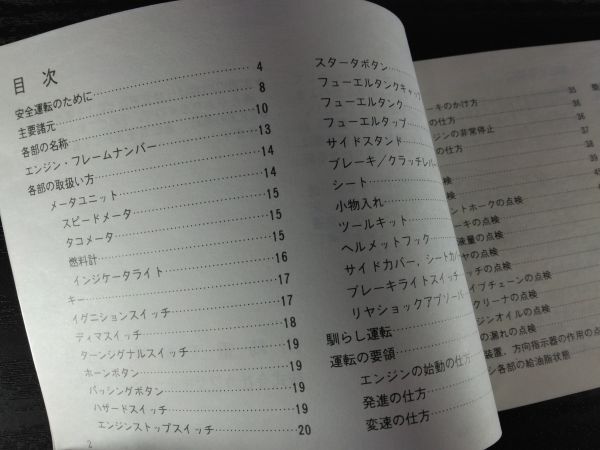 目 次
安全運転のために 4
主要諸元 8
各部の名称 10
エンジン・フレームナンバー 13
各部の取扱い方 14
メータユニット 14
スピードメータ 15
タコメータ 15
燃料計 15
インジケータライト 16
キー 17
イグニションスイッチ 17
ディマスイッチ 18
ターンシグナルスイッチ 19
ホーンボタン 19
パッシングボタン 19
ハザードスイッチ 19
エンジンストップスイッチ 20
2
スタータボタン
フューエルタンクキャップ
フューエルタンク
フューエルタップ
サイドスタンド
ブレーキ/クラッチレバ
シート
小物入れ
ツールキット
ヘルメットフック
サイドカバー，シートカバ
ブレーキライトスイッチ
リヤショックアブソール
馴らし運転
運転の要領
エンジンの始動の仕方
発進の仕方
変速の仕方
ーキのかけ方 35
の仕方 36
ジンの非常停止 36
の仕方 37
38
検 39
検
ントホークの点検
ーキの点検
液量の点検
ヤの点検
ッチの点検
イブチェーンの点検
クリーナの点検
ジンオイルの点検
の漏れの点検
装置，方向指示器の作用の点
ン各部の給油脂状態